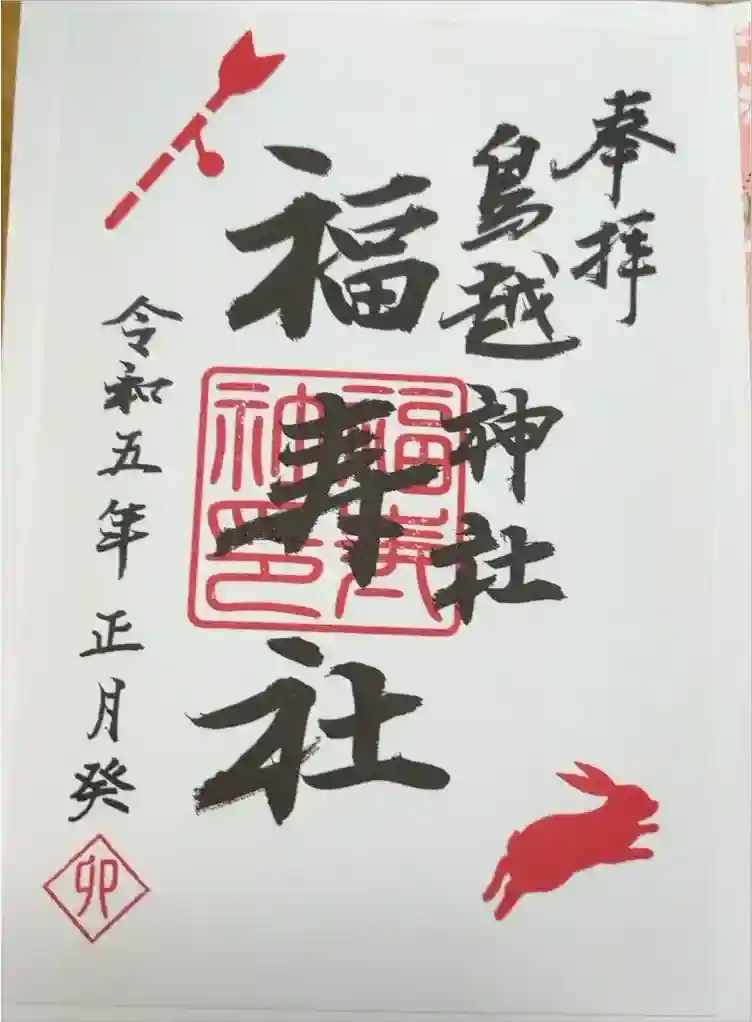 奉拝
鳥越神社
福寿社
福壽神印
令和五年正月癸
卯